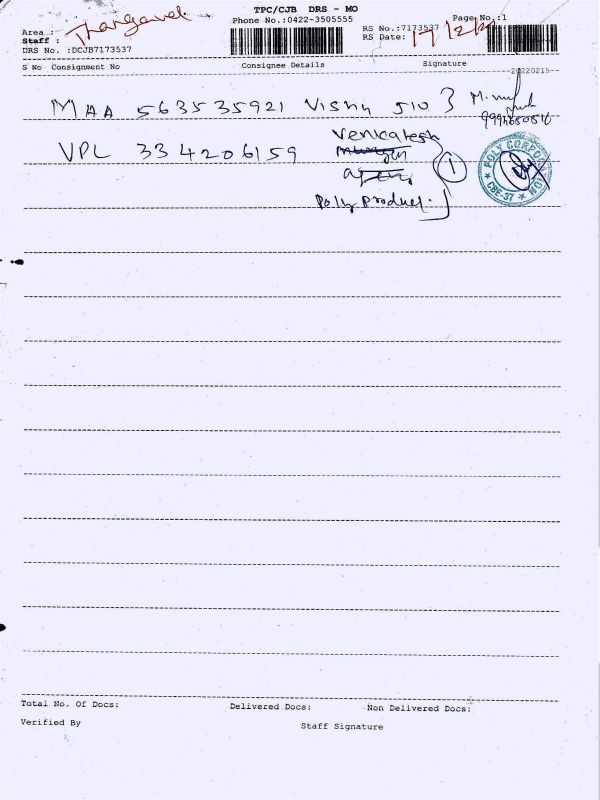 TPC/CJB DRS - MO
Phone No.:0422-3505555
Page No.:1
Area :
Thangavel
Staff :
DRS No. :DCJB7173537
RS No.:7173537
RS Date: 17/2/22
S No Consignment No Consignee Details Signature
20220215
MAA 563535921 Vishu 510 }
VPL 334206159 Venkatesh
Poly product.
1
POLY CORPORATION
CBE-37
Total No. Of Docs: Delivered Docs: Non Delivered Docs:
Verified By Staff Signature